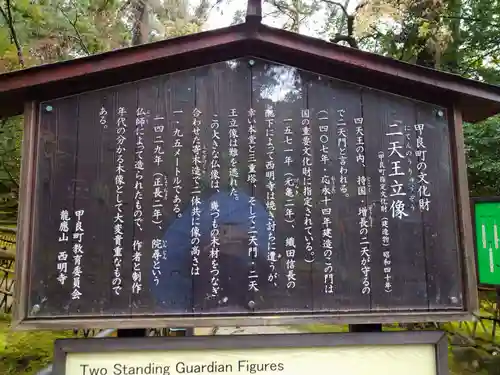 甲良町の文化財
にてんのうりゅうぞう
二天王立像
(甲良町指定文化財(建造物)昭和四十年)
四天王の内、持国・増長の二天が守るの
で二天門と言われる。
(一四〇七年・応永十四年建造のこの門は
国の重要文化財に指定されている。)
一五七一年(元亀二年)、織田信長の
配下によって西明寺は焼き討ちに遭うが、
幸い本堂と三重塔、そして二天門・二天
王立像は難を逃れた。
この大きな仏像は、幾つもの木材をつなぎ
合わせた寄木造で二体共に像の高さは
一・九五メートルである。
一四二九年(正長二年)、院尋という
仏師によって造られたもので、作者と制作
年代の分かる木像として大変貴重なもので
ある。
甲良町教育委員会
龍應山 西明寺
Two Standing Guardian Figures